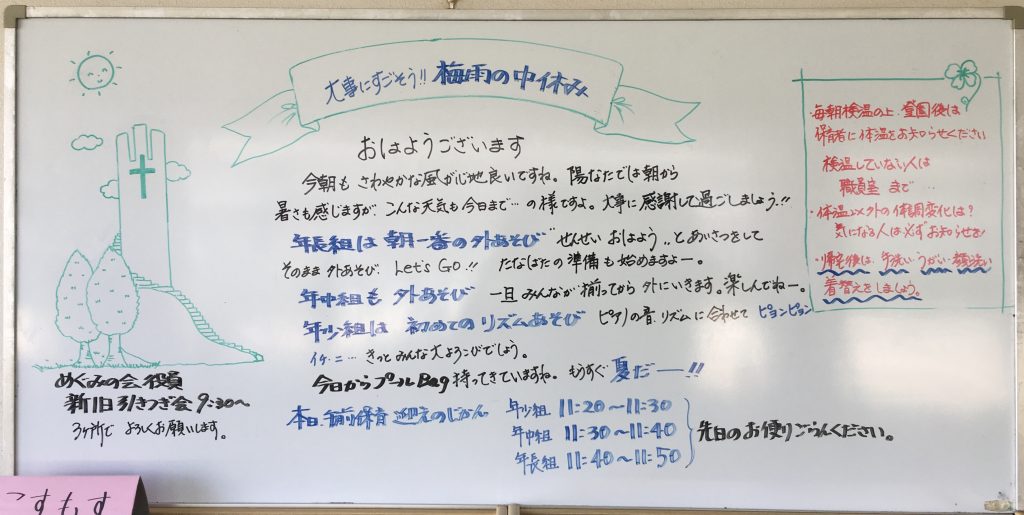 大事にすごそう!! 梅雨の中休み
おはようございます
今朝も さわやかな風が心地良いですね。陽なたでは朝から
暑さも感じますが、こんな天気も今日まで…の様ですよ。大事に感謝して過ごしましょう!!
年長組は 朝一番の外あそび "せんせい おはよう"..とあいさつをして
そのまま 外あそび、Let's Go!! たなばたの準備も始めますよー。
年中組も 外あそび 一旦 みんなが 揃ってから 外にいきます。楽しんでねー。
年少組は 初めてのリズムあそび ピアノの音、リズムに合わせて ピョンピョン
イチ・ニ… きっと みんな 大よろこびでしょう。
今日から プール Bag 持ってきていますね。もうすぐ 夏だー!!
本日、午前保育 迎えのじかん
年少組 11:20〜11:30
年中組 11:30〜11:40
年長組 11:40〜11:50
先日のお便りごらんください。
めぐみの会 役員
新旧引きつぎ会 9:30〜
3ヶ所で よろしくお願いします。
・毎朝検温の上、登園後は
保育者に体温をお知らせください
検温していない人は
職員室 まで…
・体温以外の体調変化は?
気になる人は必ずお知らせを!
・帰宅後は、手洗い うがい・顔洗い
着替えをしましょう。
こすもす